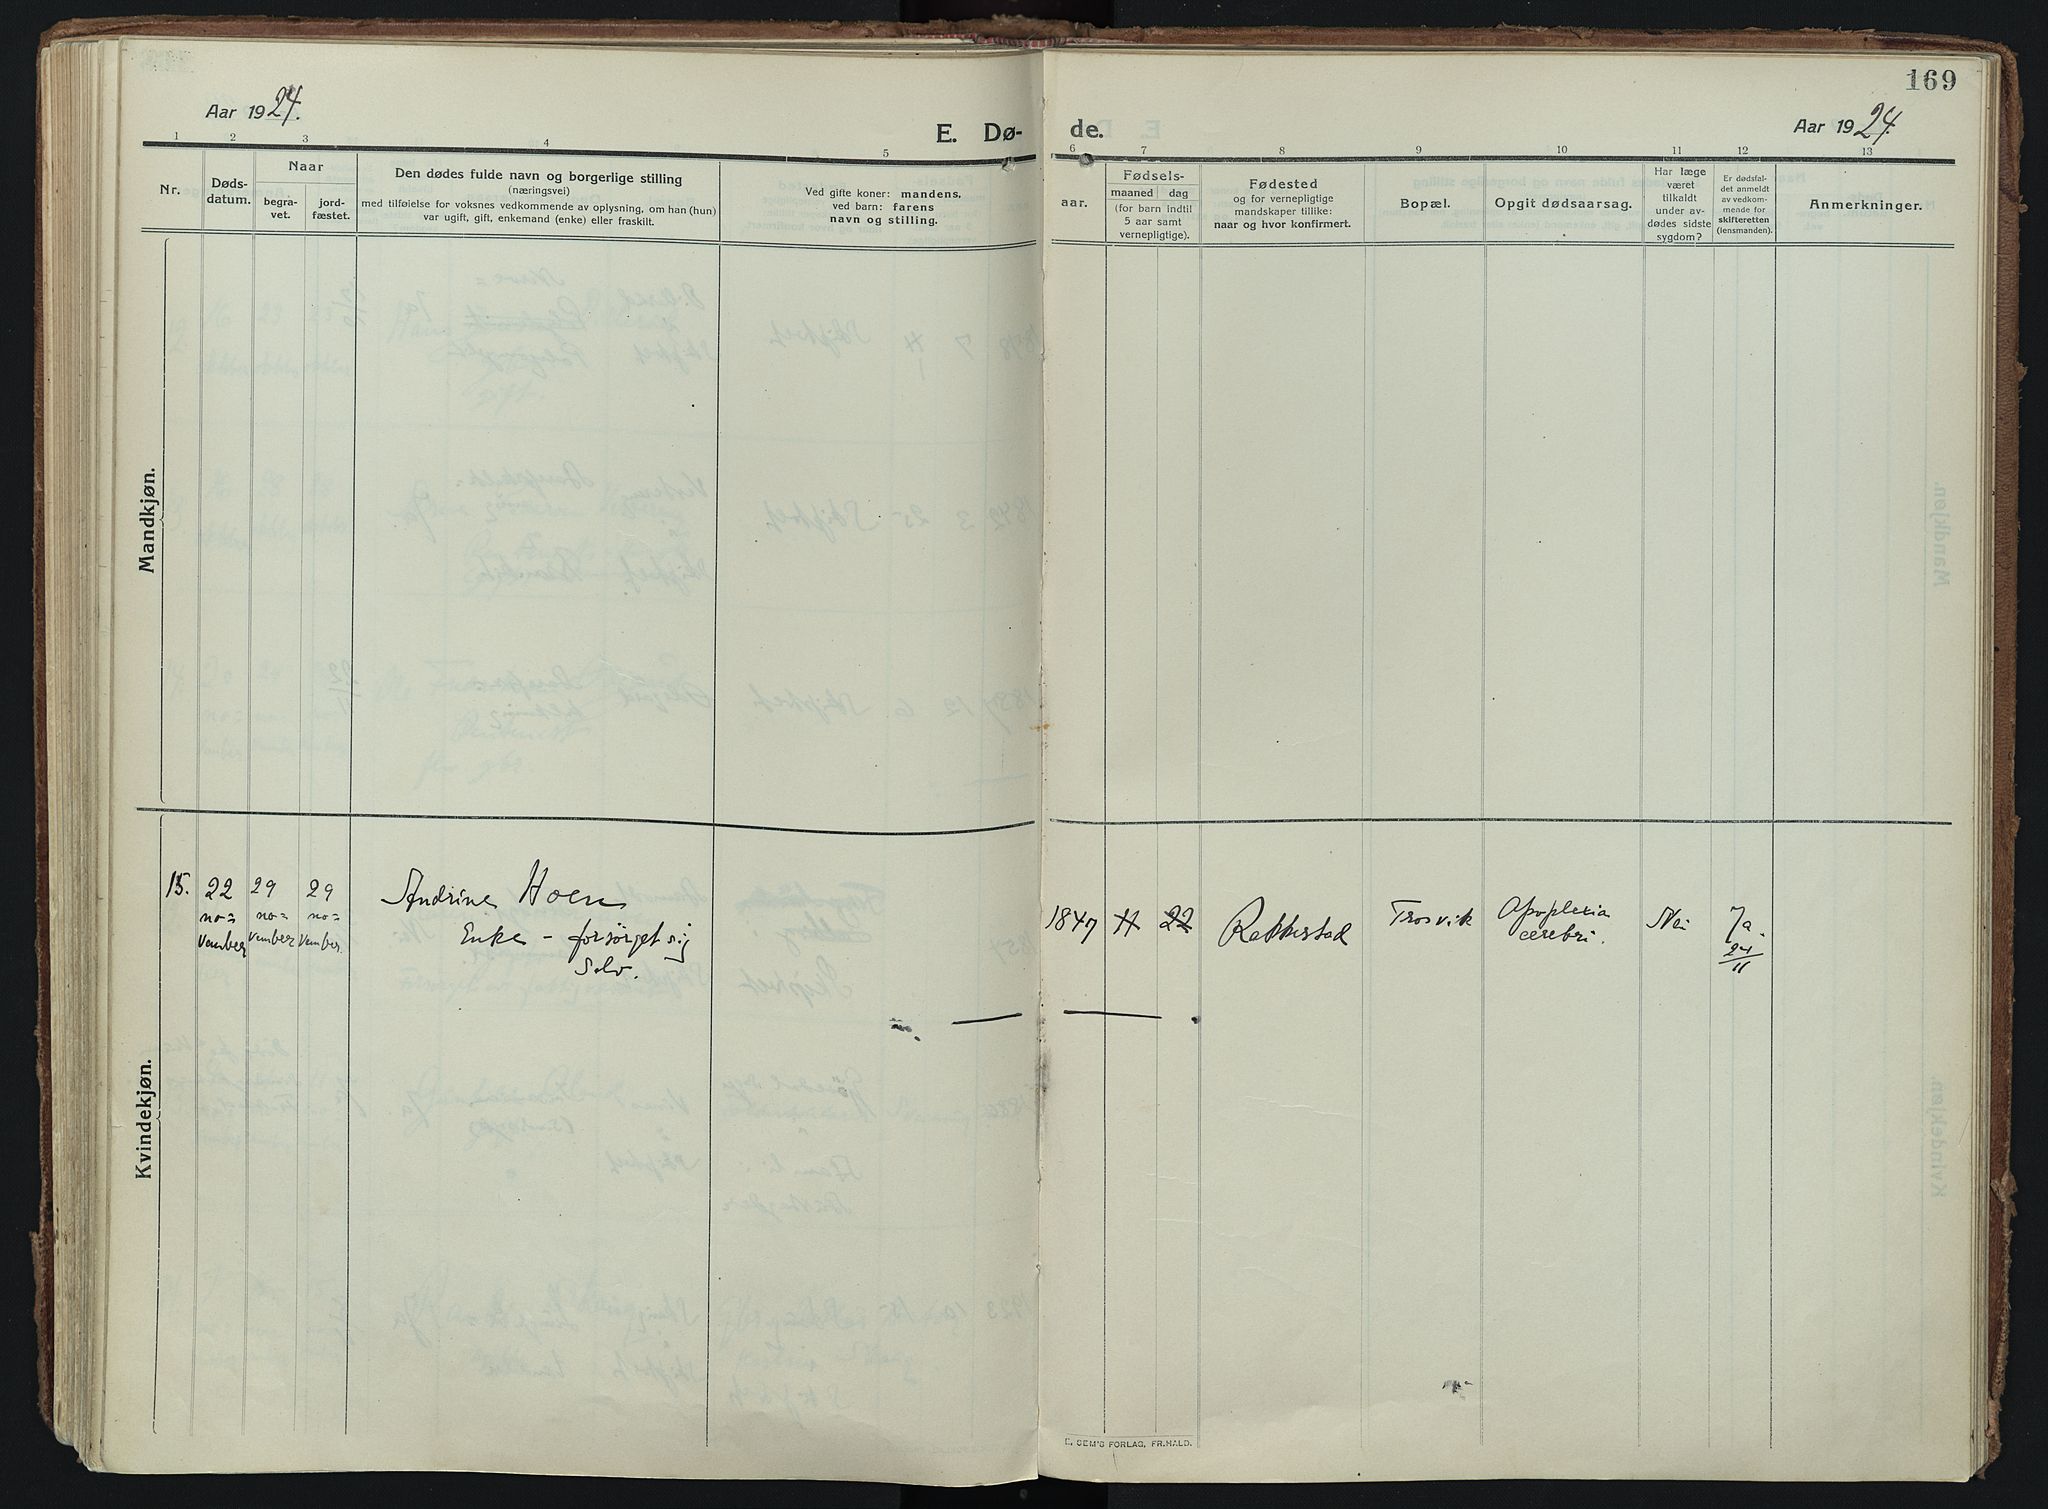 169
Aar 1924.
E. Dø-
de.
Aar 1924.
1 2 3 4 5 6 7 8 9 10 11 12 13
Nr.
Døds-
datum.
Naar
begra-
vet.
jord-
fæstet.
Den dødes fulde navn og borgerlige stilling
(næringsvei)
med tilføielse for voksnes vedkommende av oplysning, om han (hun)
var ugift, gift, enkemand (enke) eller fraskilt.
Ved gifte koner: mandens,
ved barn: farens
navn og stilling.
aar.
Fødsels-
maaned dag
(for barn indtil
5 aar samt
vernepligtige).
Fødested
og for vernepligtige
mandskaper tillike:
naar og hvor konfirmert.
Bopæl.
Opgit dødsaarsag.
Har læge
været
tilkaldt
under av-
dødes sidste
sygdom?
Er dødsfal-
det anmeldt
av vedkom-
mende for
skifteretten
(lensmanden).
Anmerkninger.
Mandkjøn.
Kvindekjøn.
15.
22
no=
vember
29
no=
vember
29
no=
vember.
Andrine Hoen
Enke – forsørget sig
selv.
1847
11
22
Rakkestad
Trosvik
Apoplexia
cerebri.
Nei
Ja.
24/11
E. SEM'S FORLAG, FR.HALD.